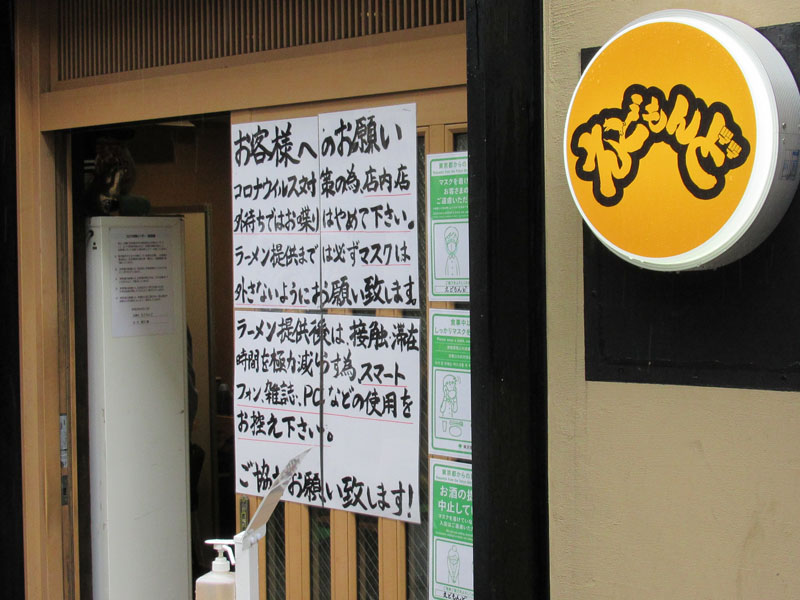 お客様へのお願い
コロナウイルス対策の為、店内店
外待ちではお喋りはやめて下さい。
ラーメン提供までは必ずマスクは
外さないようにお願い致します。
ラーメン提供後は、接触、滞在
時間を極力減らす為、スマート
フォン、雑誌、PCなどの使用を
お控え下さい。
ご協力お願い致します!
えどもんど
東京都からの
マスクを
お客さま
ご遠慮いただ
えどもんど
食事中
しっかりマスク
東京都からの
お酒の
中止して
マスクを
えどもんど